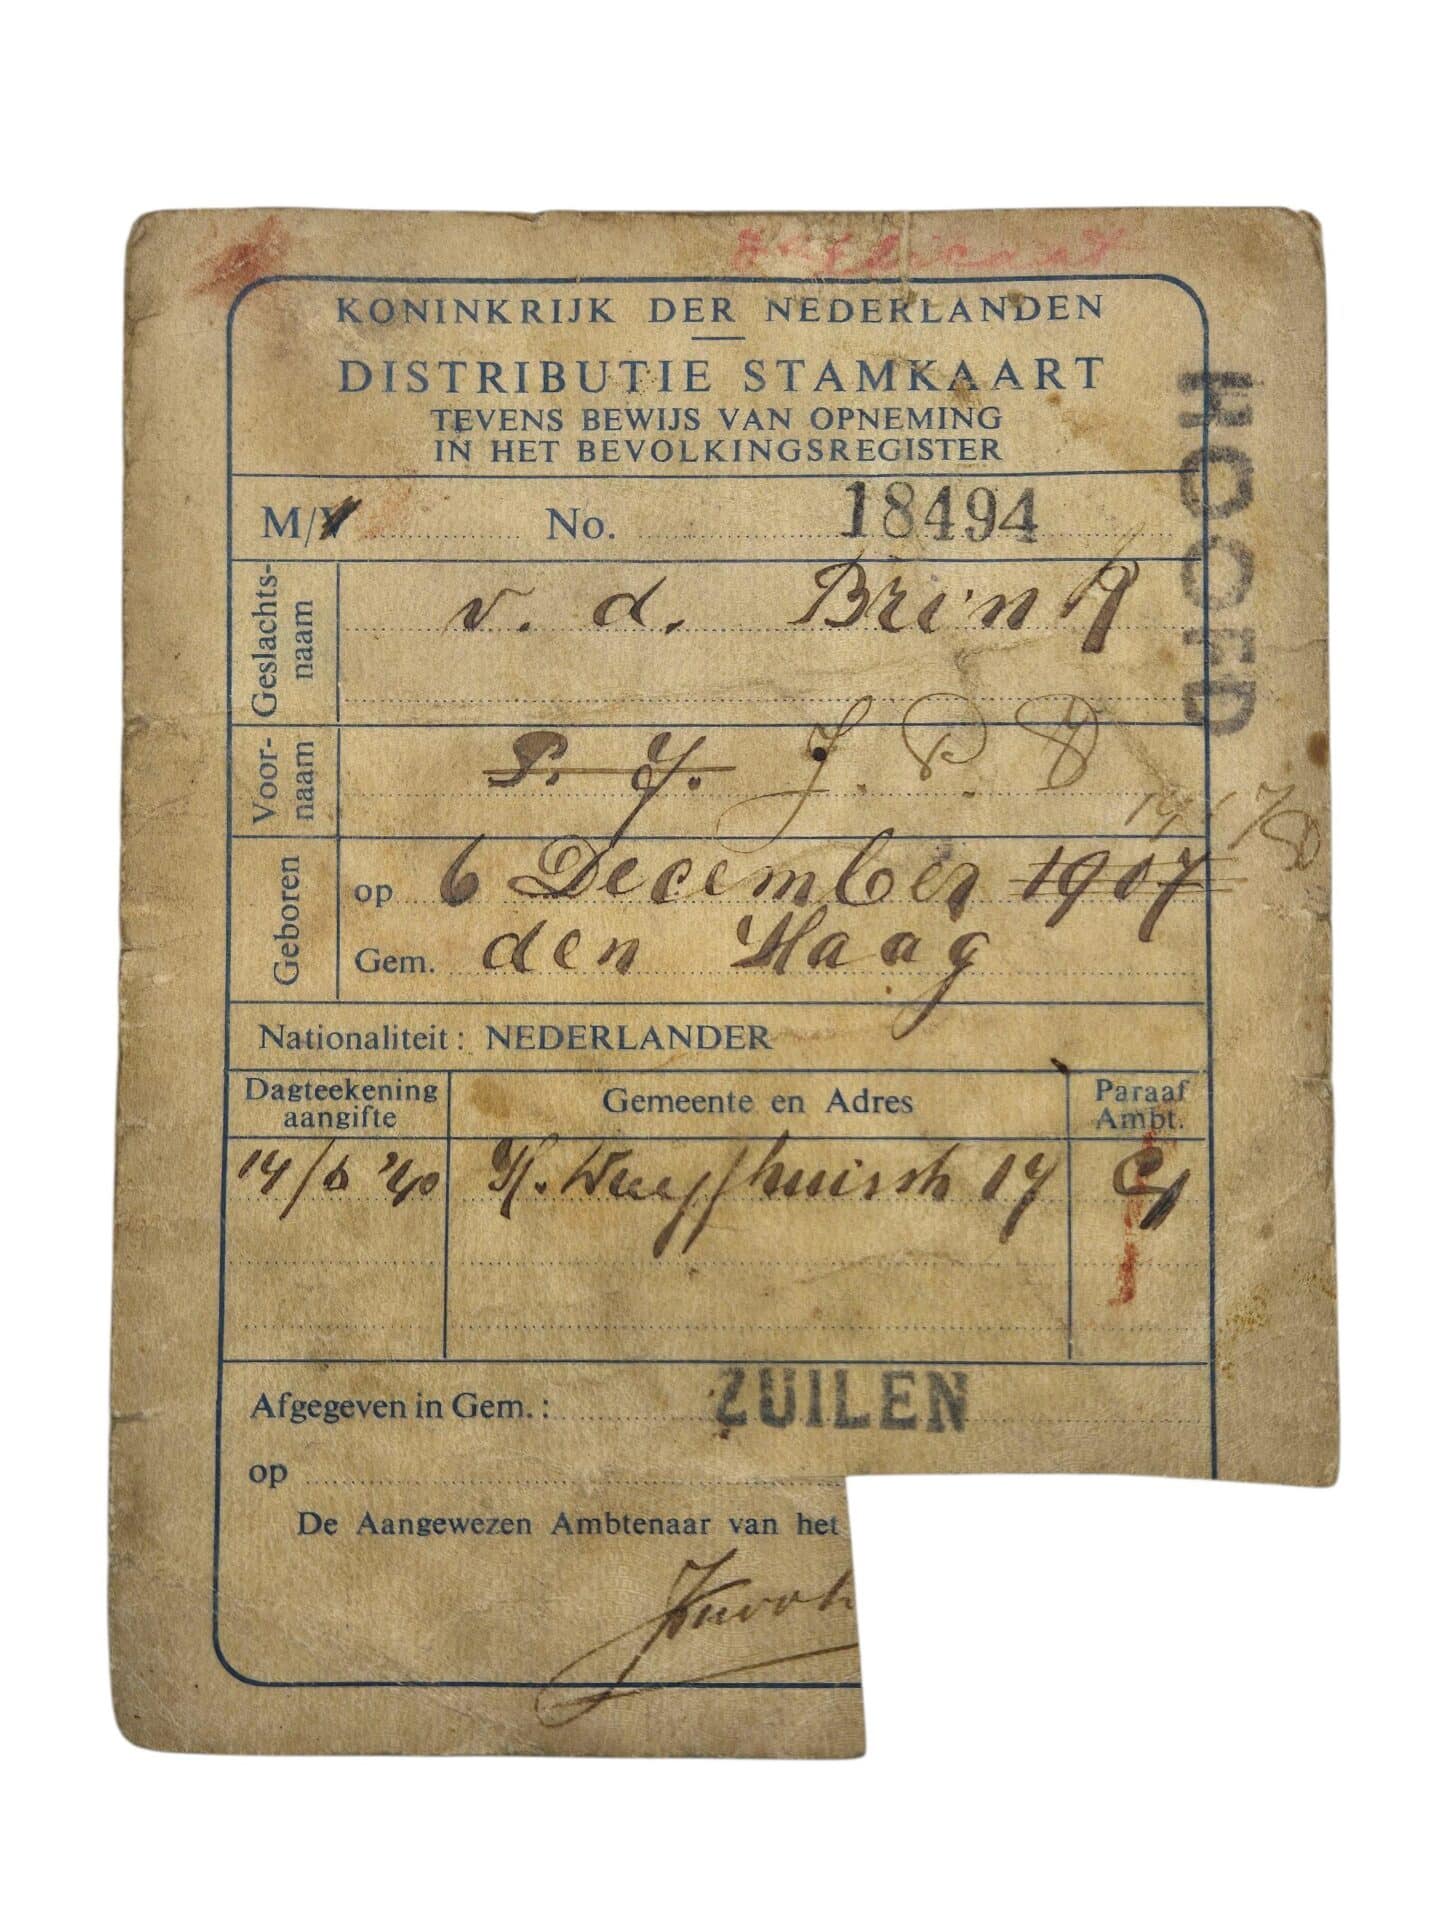 Duplicaat
KONINKRIJK DER NEDERLANDEN
DISTRIBUTIE STAMKAART
TEVENS BEWIJS VAN OPNEMING
IN HET BEVOLKINGSREGISTER
M/V No. 18494
HOOFD
Geslachts-
naam
v. d. Brink
Voor-
naam
P. J. J. P. D
Geboren
op 6 December 1907
Gem. den Haag
Nationaliteit: NEDERLANDER
Dagteekening
aangifte
Gemeente en Adres
Paraaf
Ambt.
14/6 '40 17
Afgegeven in Gem.: ZUILEN
op
De Aangewezen Ambtenaar van het